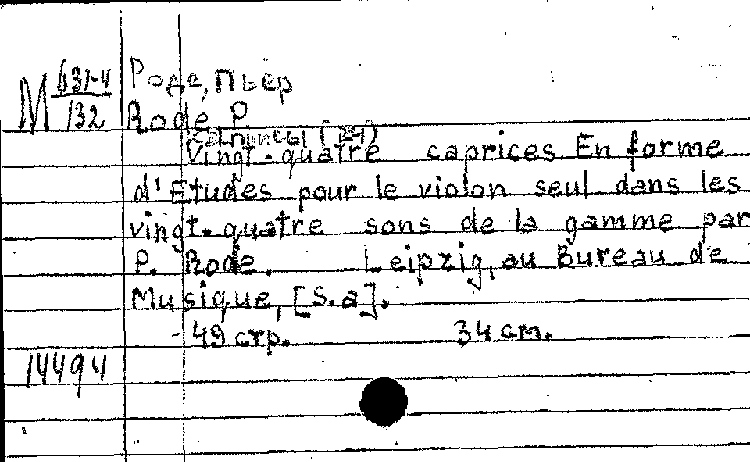 М 631-4
132
Роде, Пьер
Rode, P.
[Этюды (24)]
Vingt-quatre caprices En forme
d'Etudes pour le violon seul dans les
vingt-quatre sons de la gamme par
P. Rode. Leipzig, au Bureau de
Musique, [S.a].
49 стр. 34 cm.
14494